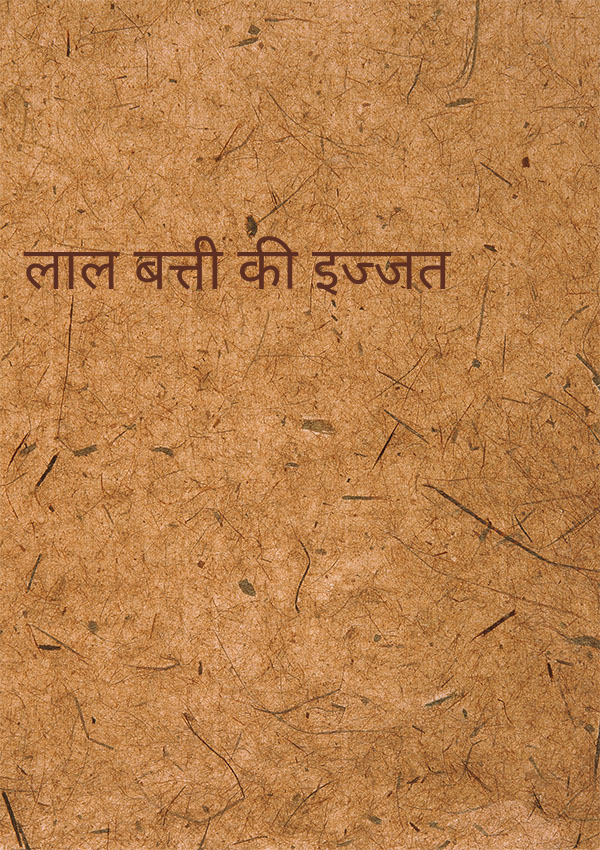 लाल बत्ती की इज्जत